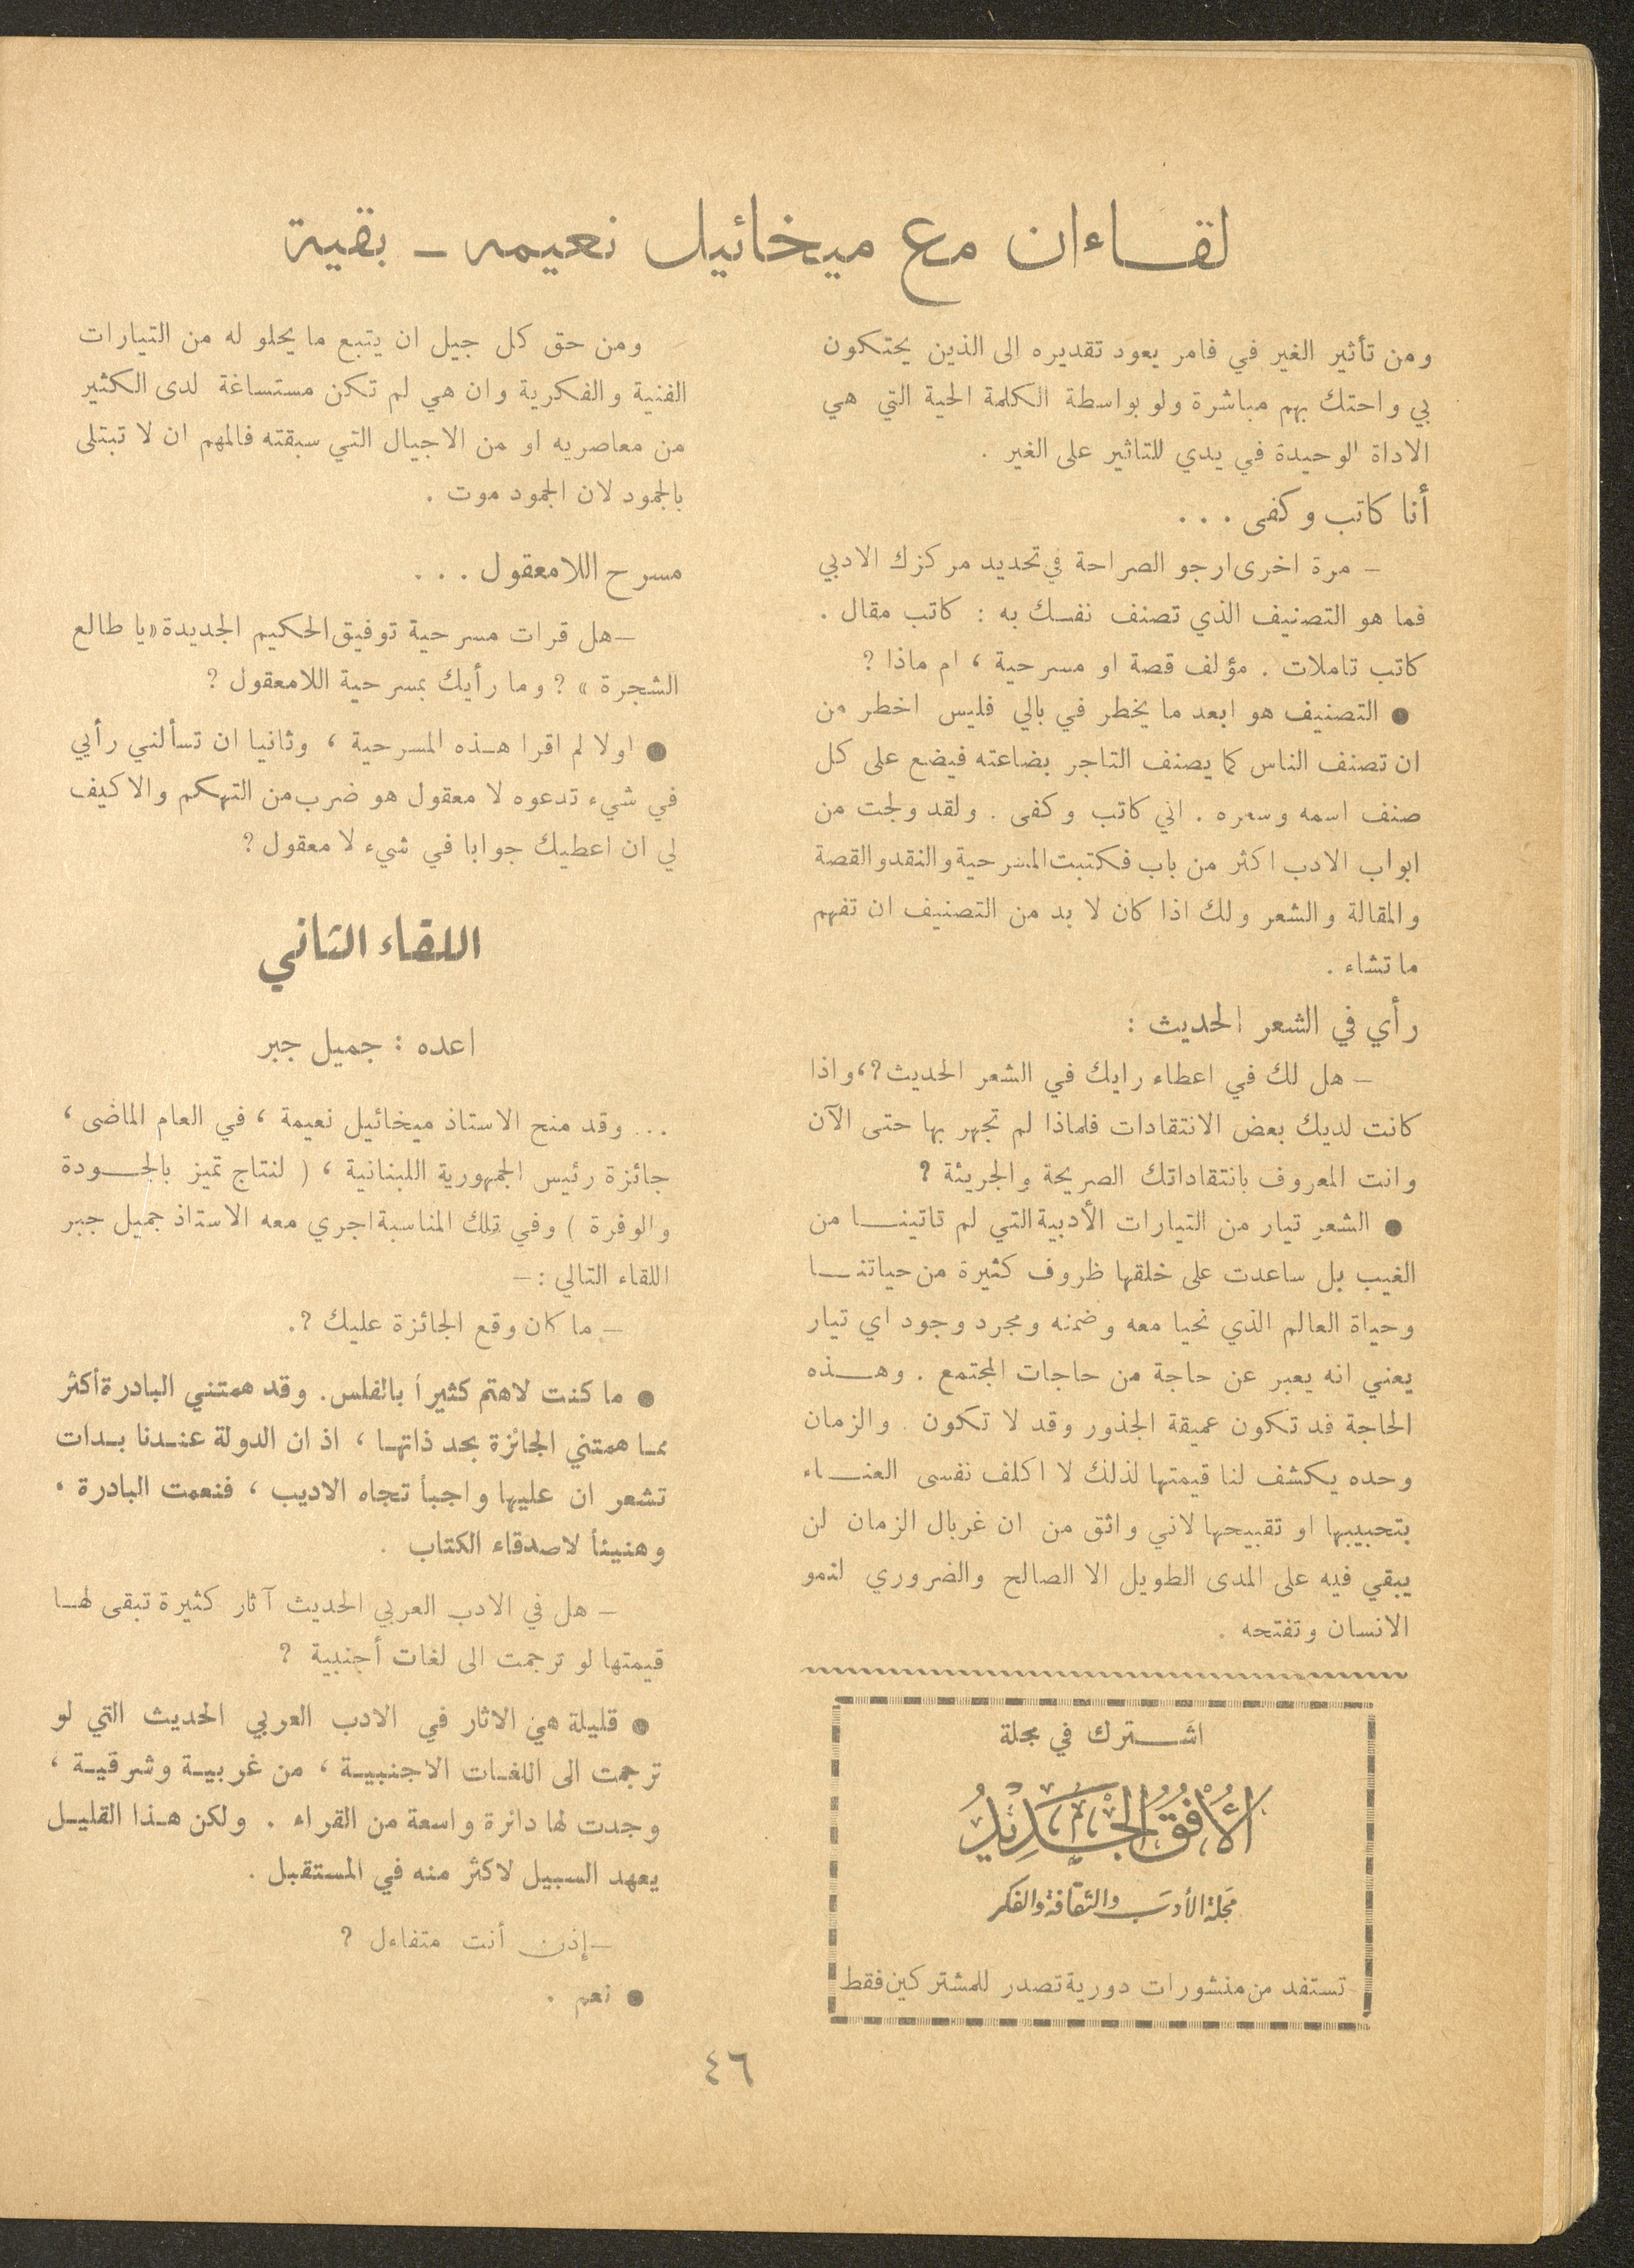 لقاءان مع ميخائيل نعيمه - بقية
ومن تأثير الغير في فامر يعود تقديره الى الذين يحتكون
بي واحتك بهم مباشرة ولو بواسطة الكلمة الحية التي هي
الاداة الوحيدة في يدي للتاثير على الغير .
أنا كاتب وكفى . . .
— مرة اخرى ارجو الصراحة في تحديد مركزك الادبي
فما هو التصنيف الذي تصنف نفسك به : كاتب مقال .
كاتب تاملات . مؤلف قصة او مسرحية ، ام ماذا ?
● التصنيف هو ابعد ما يخطر في بالي فليس اخطر من
ان تصنف الناس كما يصنف التاجر بضاعته فيضع على كل
صنف اسمه وسعره . اني كاتب وكفى . ولقد ولجت من
ابواب الادب اكثر من باب فكتبت المسرحية والنقد والقصة
والمقالة والشعر ولك اذا كان لا بد من التصنيف ان تفهم
ما تشاء .
رأي في الشعر الحديث :
— هل لك في اعطاء رايك في الشعر الحديث ?، واذا
كانت لديك بعض الانتقادات فلماذا لم تجهر بها حتى الآن
وانت المعروف بانتقاداتك الصريحة والجريئة ?
● الشعر تيار من التيارات الأدبية التي لم تاتينا من
الغيب بل ساعدت على خلقها ظروف كثيرة من حياتنا
وحياة العالم الذي نحيا معه وضمنه ومجرد وجود اي تيار
يعني انه يعبر عن حاجة من حاجات المجتمع . وهذه
الحاجة قد تكون عميقة الجذور وقد لا تكون . والزمان
وحده يكشف لنا قيمتها لذلك لا اكلف نفسى العناء
بتحبيبها او تقبيحها لاني واثق من ان غربال الزمان لن
يبقي فيه على المدى الطويل الا الصالح والضروري لنمو
الانسان وتفتحه .
اشترك في مجلة
الأُفُقُ الجَديدُ
مجلة الأدب والثقافة والفكر
تستفد من منشورات دورية تصدر للمشتركين فقط
ومن حق كل جيل ان يتبع ما يحلو له من التيارات
الفنية والفكرية وان هي لم تكن مستساغة لدى الكثير
من معاصريه او من الاجيال التي سبقته فالمهم ان لا تبتلى
بالجمود لان الجمود موت .
مسرح اللامعقول . . .
— هل قرات مسرحية توفيق الحكيم الجديدة «يا طالع
الشجرة » ? وما رأيك بمسرحية اللامعقول ?
● اولا لم اقرا هذه المسرحية ، وثانيا ان تسألني رأيي
في شيء تدعوه لا معقول هو ضرب من التهكم والا كيف
لي ان اعطيك جوابا في شيء لا معقول ?
اللقاء الثاني
اعده : جميل جبر
... وقد منح الاستاذ ميخائيل نعيمة ، في العام الماضى ،
جائزة رئيس الجمهورية اللبنانية ، ( لنتاج تميز بالجودة
والوفرة ) وفي تلك المناسبة اجري معه الاستاذ جميل جبر
اللقاء التالي : —
— ما كان وقع الجائزة عليك ?.
● ما كنت لاهتم كثيراً بالفلس. وقد همتني البادرة أكثر
مما همتني الجائزة بحد ذاتها ، اذ ان الدولة عندنا بدات
تشعر ان عليها واجباً تجاه الاديب ، فنعمت البادرة .
وهنيئاً لاصدقاء الكتاب .
— هل في الادب العربي الحديث آثار كثيرة تبقى لها
قيمتها لو ترجمت الى لغات أجنبية ?
● قليلة هي الاثار في الادب العربي الحديث التي لو
ترجمت الى اللغات الاجنبية ، من غربية وشرقية ،
وجدت لها دائرة واسعة من القراء . ولكن هذا القليل
يعهد السبيل لاكثر منه في المستقبل .
— إذن أنت متفاءل ?
● نعم .
٤٦